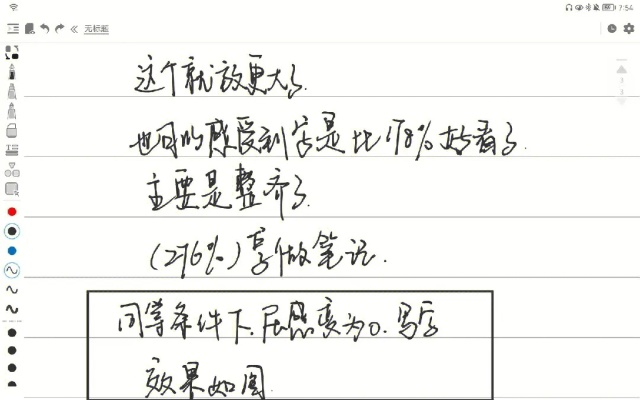 7:54
无标题
这个就放更大了
也可以感受到字是比178%好看了
主要是整齐了
(276%)写作做笔记.
同等条件下.压感变为0.写字
效果如图